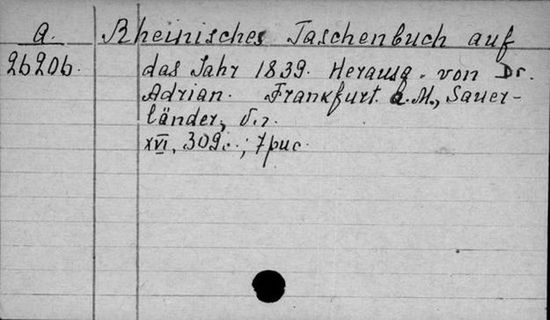 a. Rheinisches Taschenbuch auf
26206. das Jahr 1839. Herausg. von Dr.
Adrian. Frankfurt a.M., Sauer-
länder, б.г.
XVI, 309с.; 7рис.